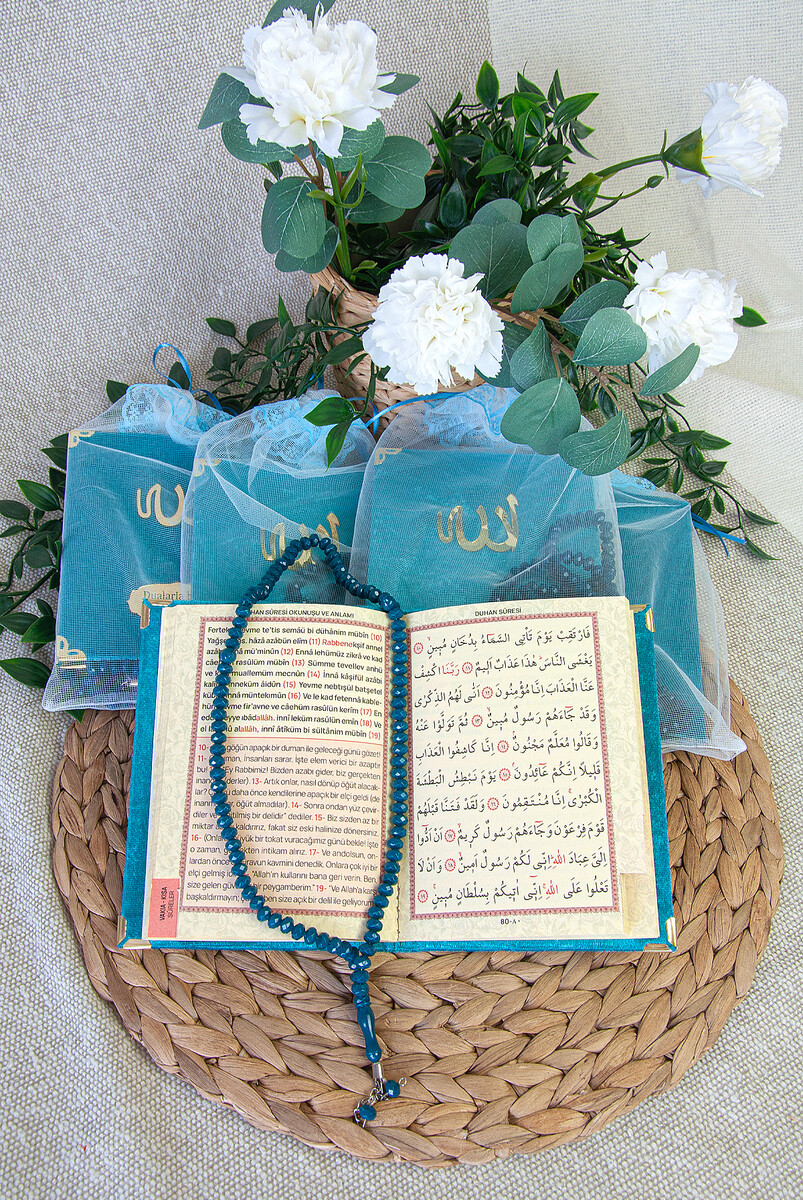 Dualarla
DUHAN SÛRESİ OKUNUŞU VE ANLAMI
Fertekı yevme te'tis semâü bi dühânim mübîn (10)
Yağşen nâs, hâzâ azâbün elîm (11) Rabbenekşif annel
azâbe innâ mü'minûn (12) Ennâ lehümüz zikrâ ve kad
câehüm rasûlüm mübîn (13) Sümme tevellev anhü
ve kâlû muallemüm mecnûn (14) İnnâ kâşifül azâbi
kalîlen inneküm âidûn (15) Yevme nebtışül batşetel
kübrâ, innâ müntekımûn (16) Ve le kad fetennâ kable-
hüm kavme fir'avne ve câehüm rasûlün kerîm (17) En
eddû ileyye ıbâdallâh, innî leküm rasûlün emîn (18) Ve
el lâ ta'lû alallâh, innî âtîküm bi sültânim mübîn (19)
10- göğün apaçık bir duman ile geleceği günü gözet.
11- duman, İnsanları sarar. İşte elem verici bir azaptır
bu! Ey Rabbimiz! Bizden azabı gider, biz gerçekten
inananlarız derler). 13- Artık onlar, nasıl dönüp öğüt alacak-
lar? daha önce kendilerine apaçık bir elçi geldi (de
inanmadılar ve öğüt almadılar). 14- Sonra ondan yüz çevir-
diler ve bir delidir" dediler. 15- Biz sizden az bir
miktar kaldırırız, fakat siz eski halinize dönersiniz.
16- (Onları) büyük bir tokat vuracağımız günü bekle! İşte
o zaman, gerçekten intikam alırız. 17- Ve andolsun, on-
lardan önce Firavun kavmini denedik. Onlara çok iyi bir
elçi gelmiş "Allah'ın kullarını bana geri verin. Ben,
size gelen güvenilir bir peygamberim." 19- "Ve Allah'a karşı
başkaldırmayın; ben size açık bir delil ile geliyorum.
VAKIA - KISA
SÛRELER
DUHAN SÛRESİ
فَارْتَقِبْ يَوْمَ تَأْتِي السَّمَاءُ بِدُخَانٍ مُبِينٍۙ ﴿١٠﴾
يَغْشَى النَّاسَۜ هٰذَا عَذَابٌ اَلِيمٌ ﴿١١﴾ رَبَّنَا اكْشِفْ
عَنَّا الْعَذَابَ اِنَّا مُؤْمِنُونَ ﴿١٢﴾ اَنّٰى لَهُمُ الذِّكْرٰى
وَقَدْ جَاءَهُمْ رَسُولٌ مُبِينٌۙ ﴿١٣﴾ ثُمَّ تَوَلَّوْا عَنْهُ
وَقَالُوا مُعَلَّمٌ مَجْنُونٌۢ ﴿١٤﴾ اِنَّا كَاشِفُوا الْعَذَابِ
قَلِيلًا اِنَّكُمْ عَائِدُونَۢ ﴿١٥﴾ يَوْمَ نَبْطِشُ الْبَطْشَةَ
الْكُبْرٰىۚ اِنَّا مُنْتَقِمُونَ ﴿١٦﴾ وَلَقَدْ فَتَنَّا قَبْلَهُمْ
قَوْمَ فِرْعَوْنَ وَجَاءَهُمْ رَسُولٌ كَرِيمٌۙ ﴿١٧﴾ اَنْ اَدُّوا
اِلَيَّ عِبَادَ اللّٰهِۜ اِنِّي لَكُمْ رَسُولٌ اَمِينٌۙ ﴿١٨﴾ وَاَنْ لَا
تَعْلُوا عَلَى اللّٰهِۚ اِنِّي اٰتِيكُمْ بِسُلْطَانٍ مُبِينٍۚ ﴿١٩﴾
80-٨٠